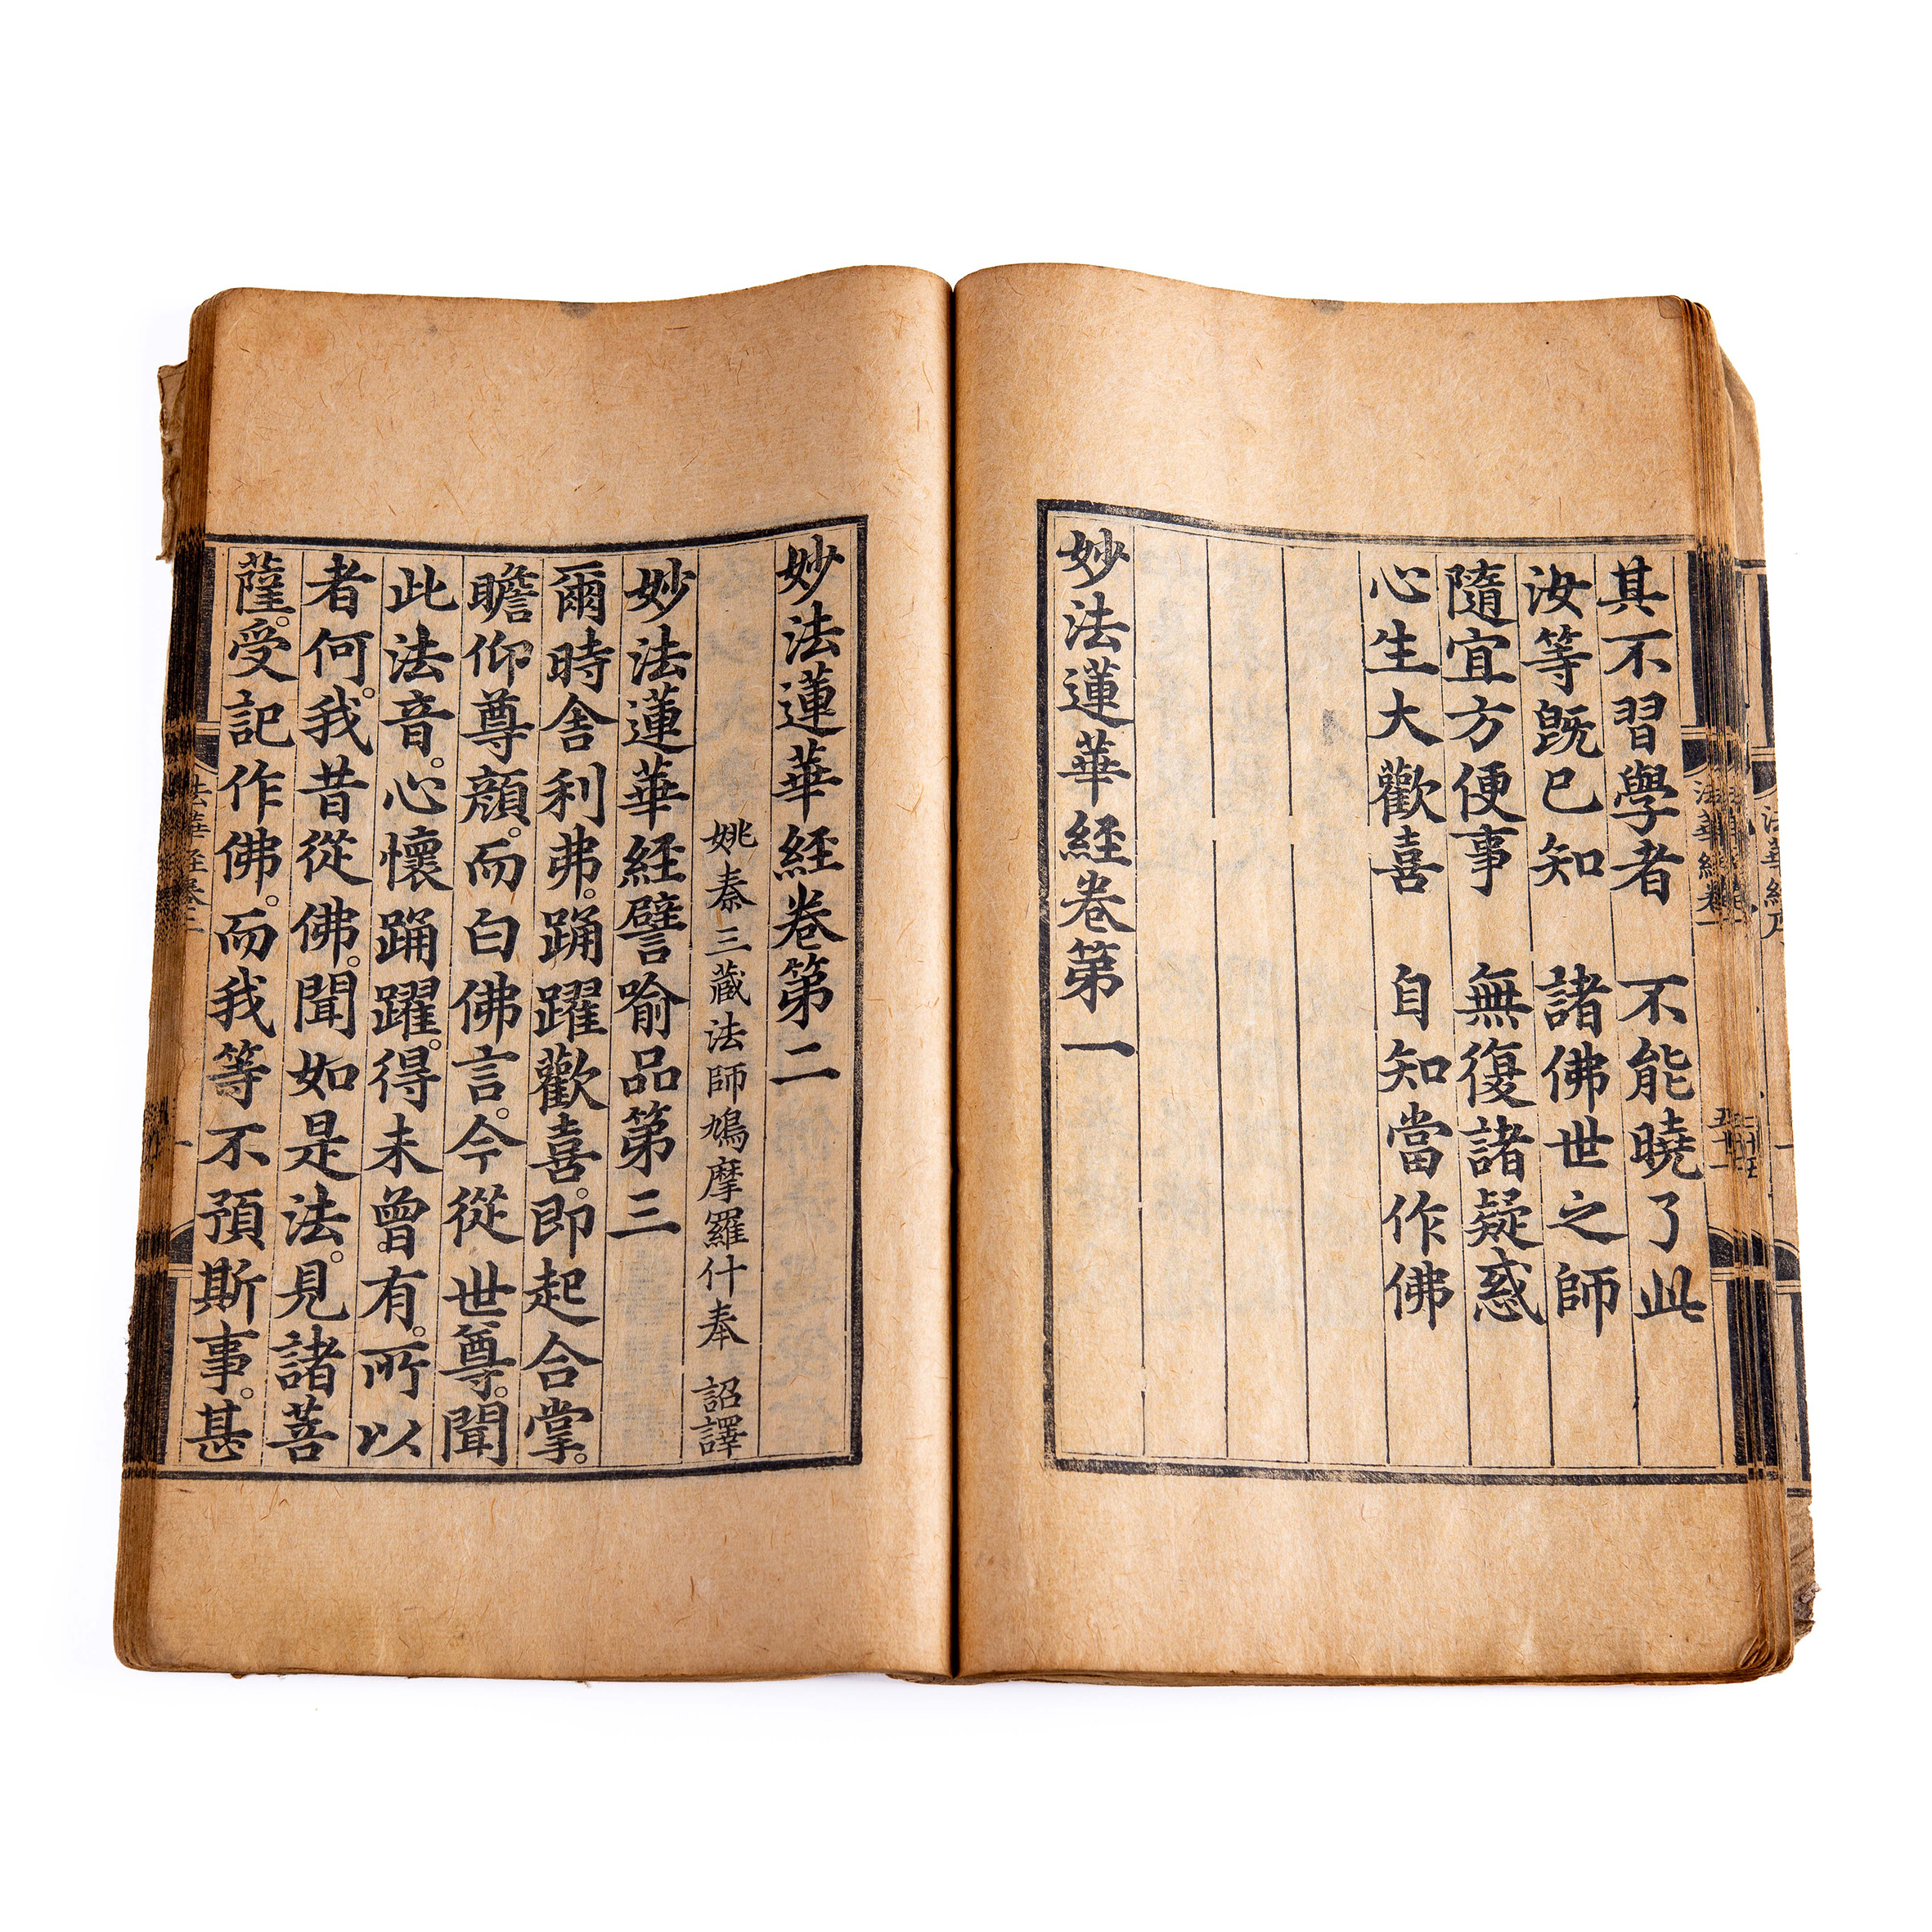 其不習學者　不能曉了此
汝等既已知　諸佛世之師
隨宜方便事　無復諸疑惑
心生大歡喜　自知當作佛
妙法蓮華經卷第一
妙法蓮華經卷第二
姚秦三藏法師鳩摩羅什奉　詔譯
妙法蓮華經譬喻品第三
爾時舍利弗。踊躍歡喜。即起合掌。
瞻仰尊顏。而白佛言。今從世尊。聞
此法音。心懷踊躍。得未曾有。所以
者何。我昔從佛。聞如是法。見諸菩
薩。受記作佛。而我等不預斯事。甚